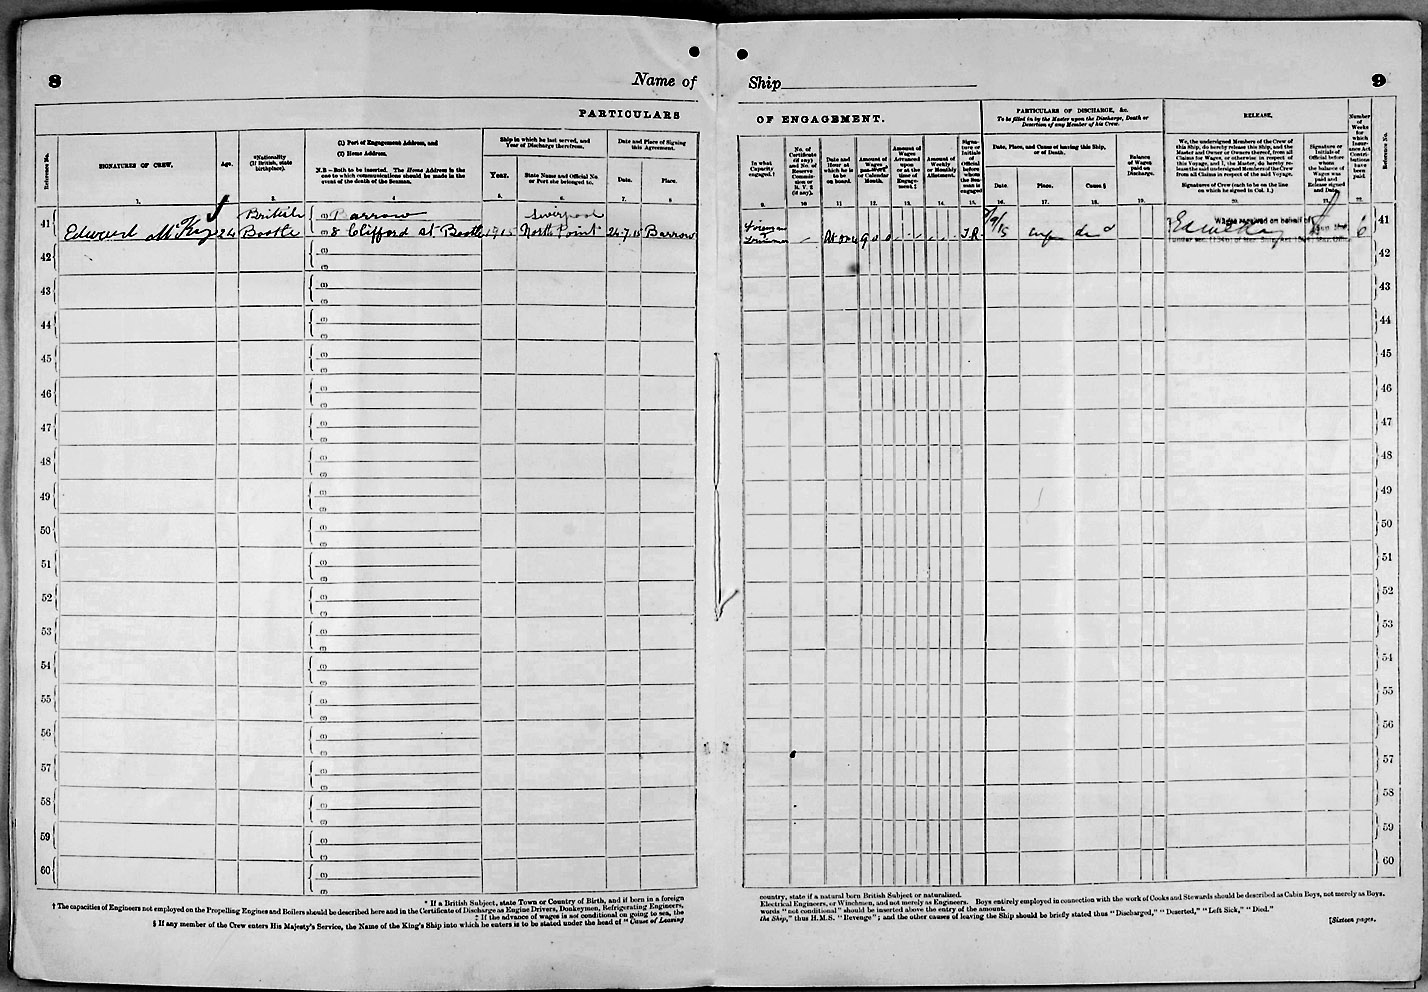 8
Name of Ship
9
PARTICULARS OF ENGAGEMENT.
Reference No.
SIGNATURES OF CREW.
1.
Age.
*Nationality (If British, state birthplace).
3.
(1) Port of Engagement Address, and
(2) Home Address.
N.B.—Both to be inserted. The Home Address is the one to which communications should be made in the event of the death of the Seaman.
4
Ship in which he last served, and Year of Discharge therefrom.
Year.
5.
State Name and Official No. or Port she belonged to.
6.
Date and Place of Signing this Agreement.
Date.
7.
Place.
8
In what Capacity engaged.†
9.
No. of Certificate (if any) and No. of Reserve Commission or R.V.2 (if any).
10
Date and Hour at which he is to be on board.
11.
Amount of Wages per Week or Calendar Month.
12.
Amount of Wages Advanced upon or at the time of Engagement.‡
13.
Amount of Weekly or Monthly Allotment.
14.
Signature or Initials of Official before whom the Seaman is engaged
15.
PARTICULARS OF DISCHARGE, &c.
To be filled in by the Master upon the Discharge, Death or Desertion of any Member of his Crew.
Date, Place, and Cause of leaving this Ship, or of Death.
Date.
16.
Place.
17.
Cause.§
18.
Balance of Wages paid on Discharge.
19.
RELEASE.
We, the undersigned Members of the Crew of this Ship, do hereby release this Ship, and the Master and Owner or Owners thereof, from all Claims for Wages, or otherwise in respect of this Voyage, and I, the Master, do hereby release the said undersigned Members of the Crew from all Claims in respect of the said Voyage.
Signatures of Crew (each to be on the line on which he signed in Col. 1.)
20.
Signature or Initials of Official before whom the Balance of Wages was paid and Release signed and Date.
21.
Number of Weeks for which Insurance Act Contributions have been paid
22.
Reference No.
41
British
(1) Barrow
Liverpool
Fireman
41
Edward McKay 24 Bootle (2) 8 Clifford St Bootle 1915 North Point 24-7-15 Barrow Trimmer At once 9 0 0 J.R.
Wages received on behalf of
42 42
43 43
44 44
45 45
46 46
47 47
48 48
49 49
50 50
51 51
52 52
53 53
54 54
55 55
56 56
57 57
58 58
59 59
60 60
* If a British Subject, state Town or Country of Birth, and if born in a foreign country, state if a natural born British Subject or naturalized.
† The capacities of Engineers not employed on the Propelling Engines and Boilers should be described here and in the Certificate of Discharge as Engine Drivers, Donkeymen, Refrigerating Engineers, Electrical Engineers, or Winchmen, and not merely as Engineers. Boys entirely employed in connection with the work of Cooks and Stewards should be described as Cabin Boys, not merely as Boys.
‡ If the advance of wages is not conditional on going to sea, the words "not conditional" should be inserted above the entry of the amount.
§ If any member of the Crew enters His Majesty's Service, the Name of the King's Ship into which he enters is to be stated under the head of "Cause of Leaving the Ship," thus H.M.S. "Revenge"; and the other causes of leaving the Ship should be briefly stated thus "Discharged," "Deserted," "Left Sick," "Died."
[Sixteen pages.